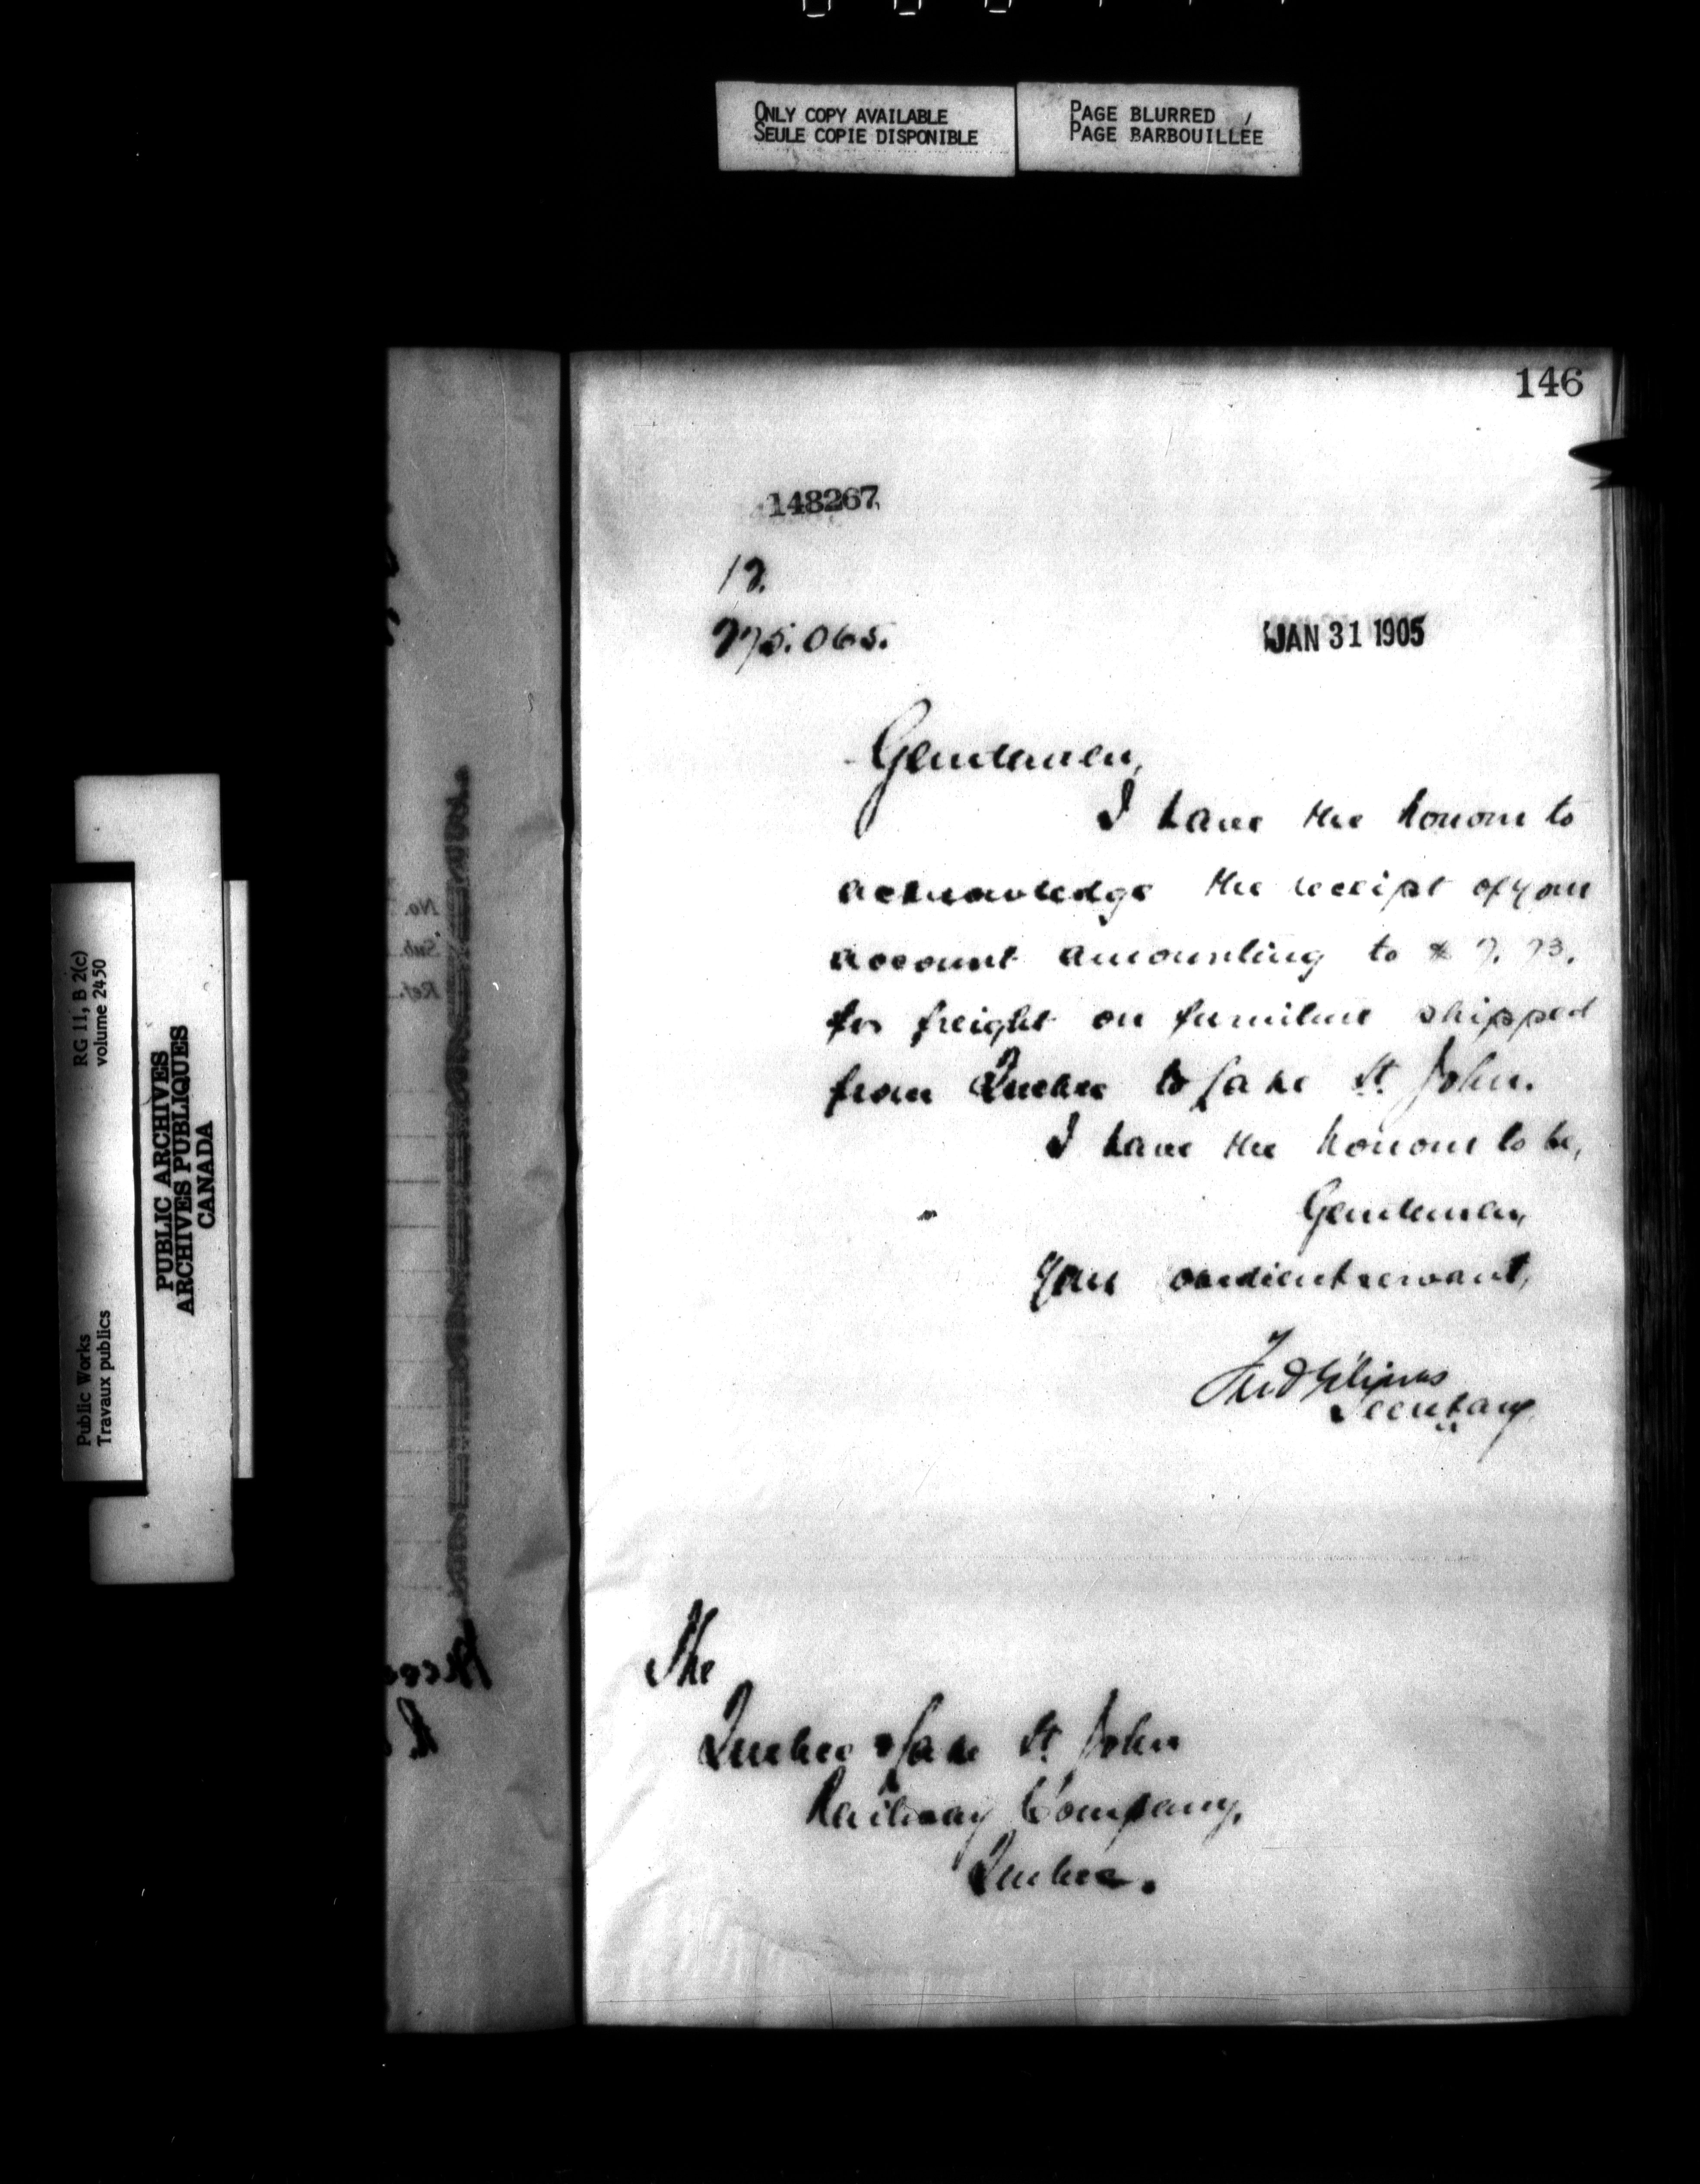 ONLY COPY AVAILABLE
SEULE COPIE DISPONIBLE
PAGE BLURRED
PAGE BARBOUILLÉE
146
148267
JAN 31 1905
Gentlemen,
I have the honour to
acknowledge the receipt of your
account amounting to $
for freight on furniture shipped
from Quebec to Lake St. John.
I have the honour to be,
Gentlemen,
Your obedient servant,
Secretary
The
Quebec & Lake St. John
Railway Company,
Quebec.
RG 11, B 2(c)
volume 2450
Public Works
Travaux publics
PUBLIC ARCHIVES
ARCHIVES PUBLIQUES
CANADA
No.
Sub.
Ref.